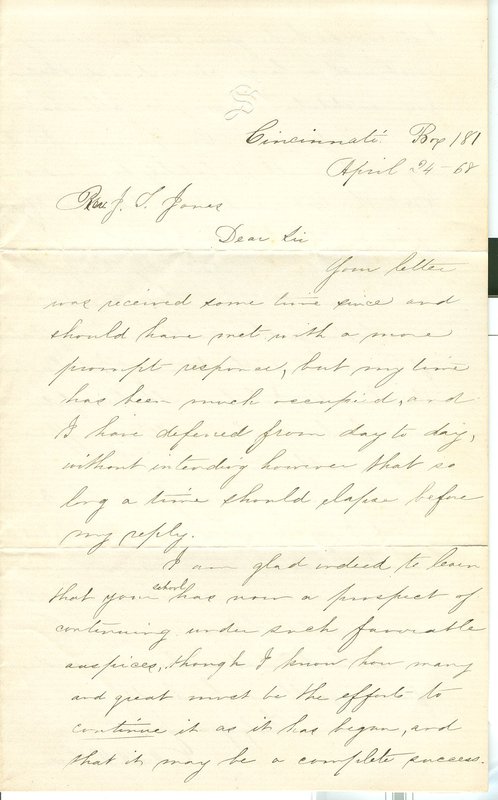 S
Cincinnati. Box 181
April 24 - 68
Rev. J. S. Jones
Dear Sir
Your letter
was received some time since and
should have met with a more
prompt response, but my time
has been much occupied, and
I have deferred from day to day,
without intending however that so
long a time should elapse before
my reply.
I am glad indeed to learn
that your school has now a prospect of
continuing under such favorable
auspices, though I know how many
and great must be the efforts to
continue it as it has begun, and
that it may be a complete success.